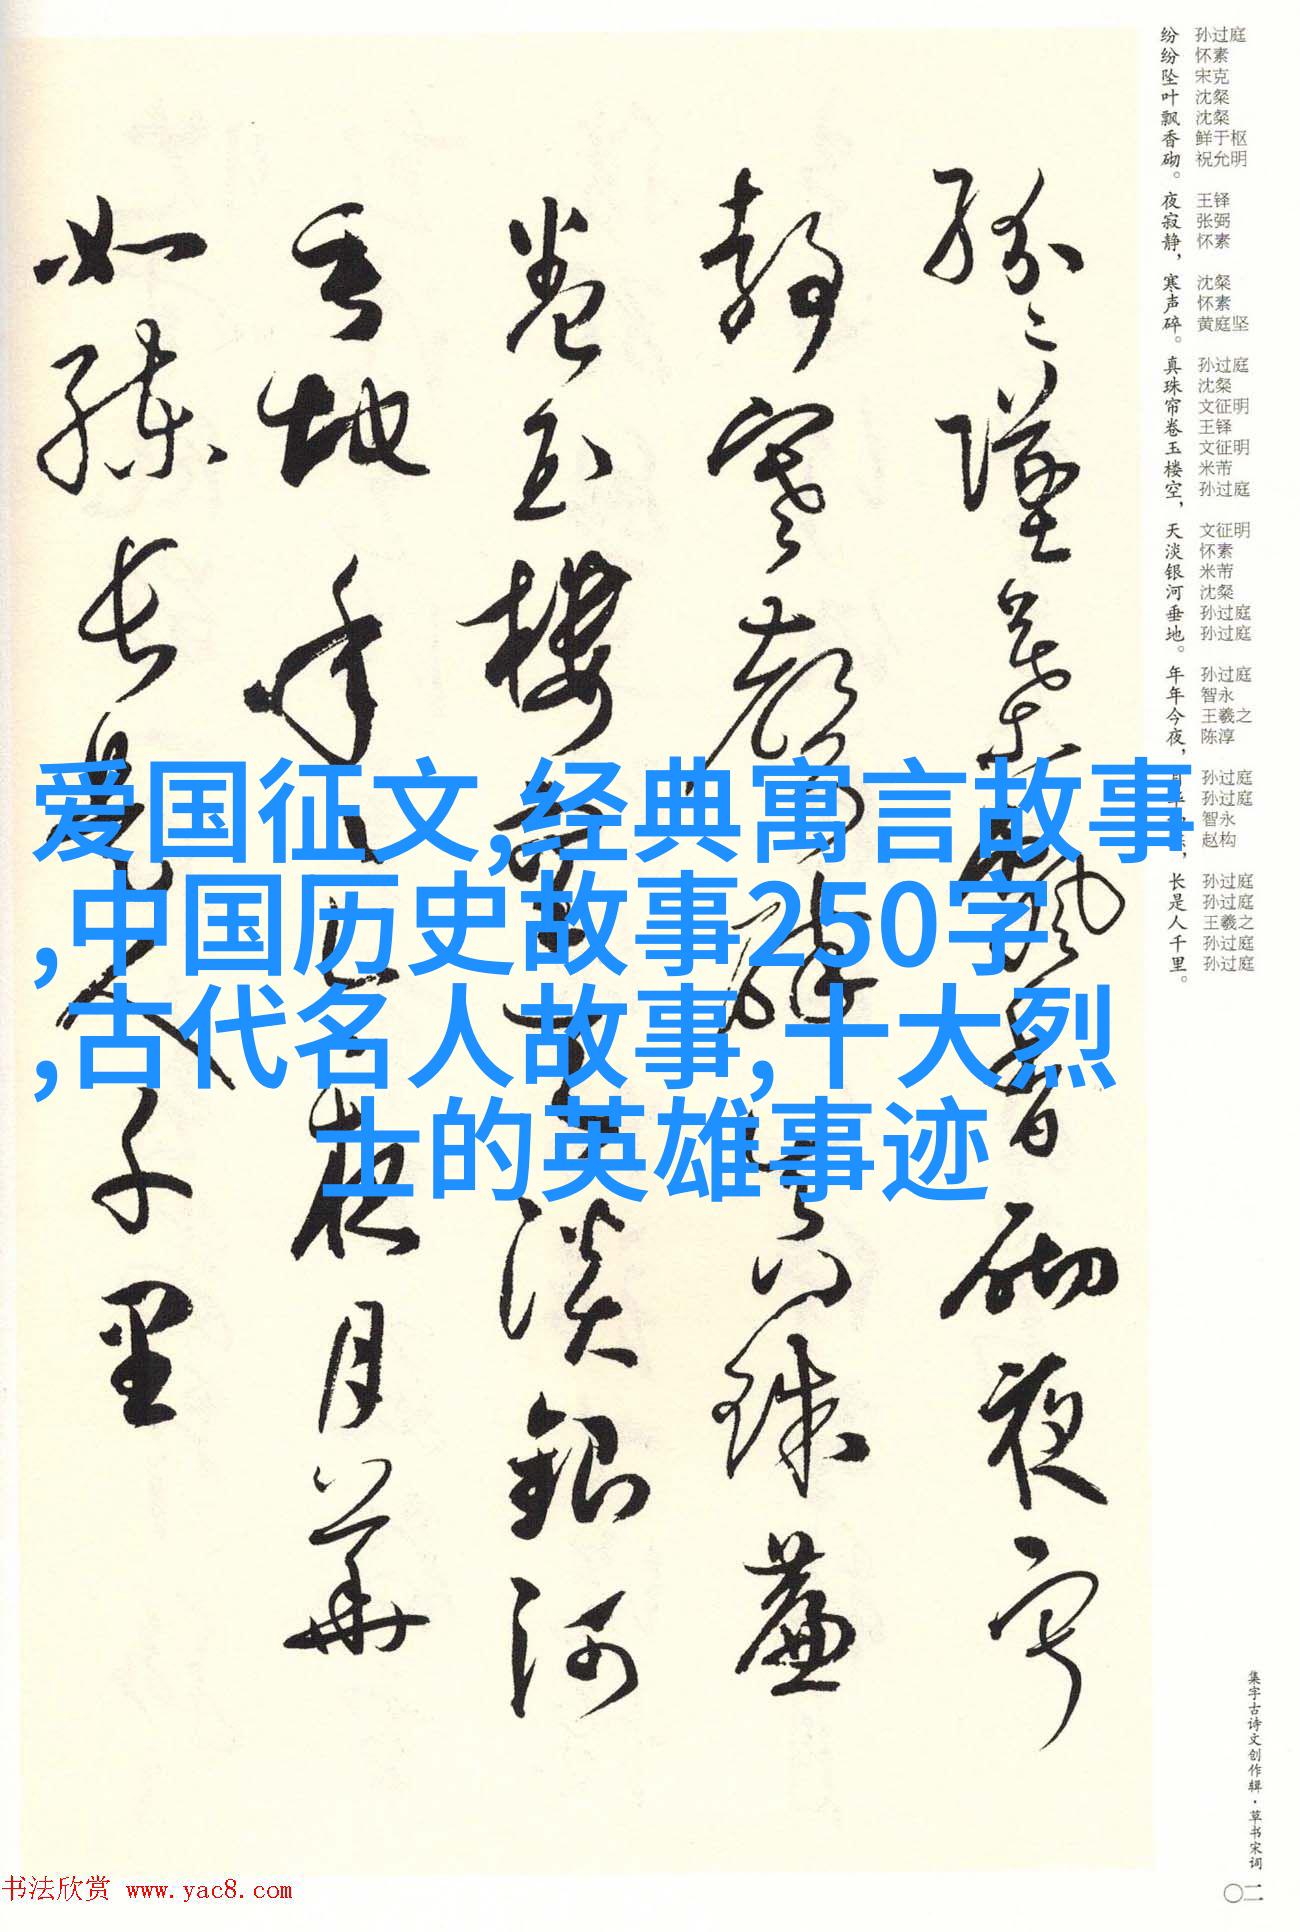 纷纷坠叶飘香砌。夜寂静，寒声碎。真珠帘卷玉楼空，天淡银河垂地。年年今夜，长是人千里。
孙过庭
怀素
宋克
沈粲
沈粲
鲜于枢
祝允明
王铎
张弼
怀素
沈粲
怀素
黄庭坚
孙过庭
沈粲
文征明
王铎
文征明
米芾
孙过庭
文征明
怀素
米芾
沈粲
孙过庭
孙过庭
孙过庭
智永
王羲之
陈淳
孙过庭
孙过庭
智永
赵构
孙过庭
孙过庭
王羲之
孙过庭
孙过庭
紛々墜葉飄香砌夜寂
靜寒聲碎真珠簾
卷玉樓空天淡銀河
垂地年々今夜月華
如練長是人千里
爱国征文,经典寓言故事
,中国历史故事250字
,古代名人故事,十大烈
士的英雄事迹
集字古诗文创作辑·草书宋词
〇二
书法欣赏 www.yac8.com